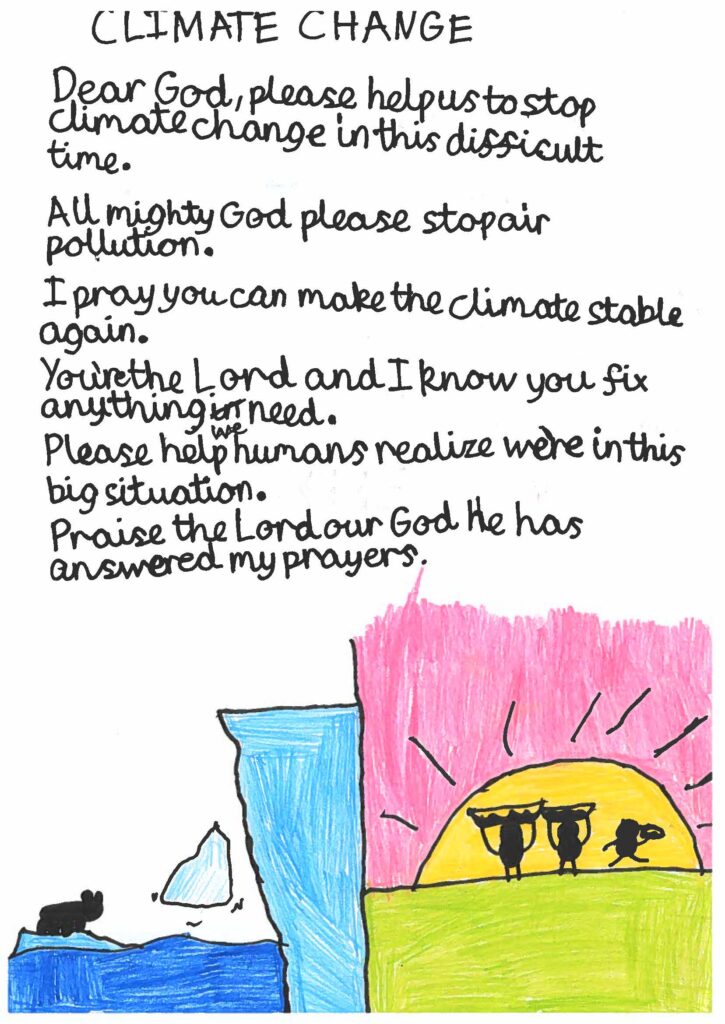 CLIMATE CHANGE
Dear God, please help us to stop
climate change in this difficult
time.
All mighty God please stop air
pollution.
I pray you can make the climate stable
again.
You're the Lord and I know you fix
anything in need.
Please help we humans realize we're in this
big situation.
Praise the Lord our God He has
answered my prayers.